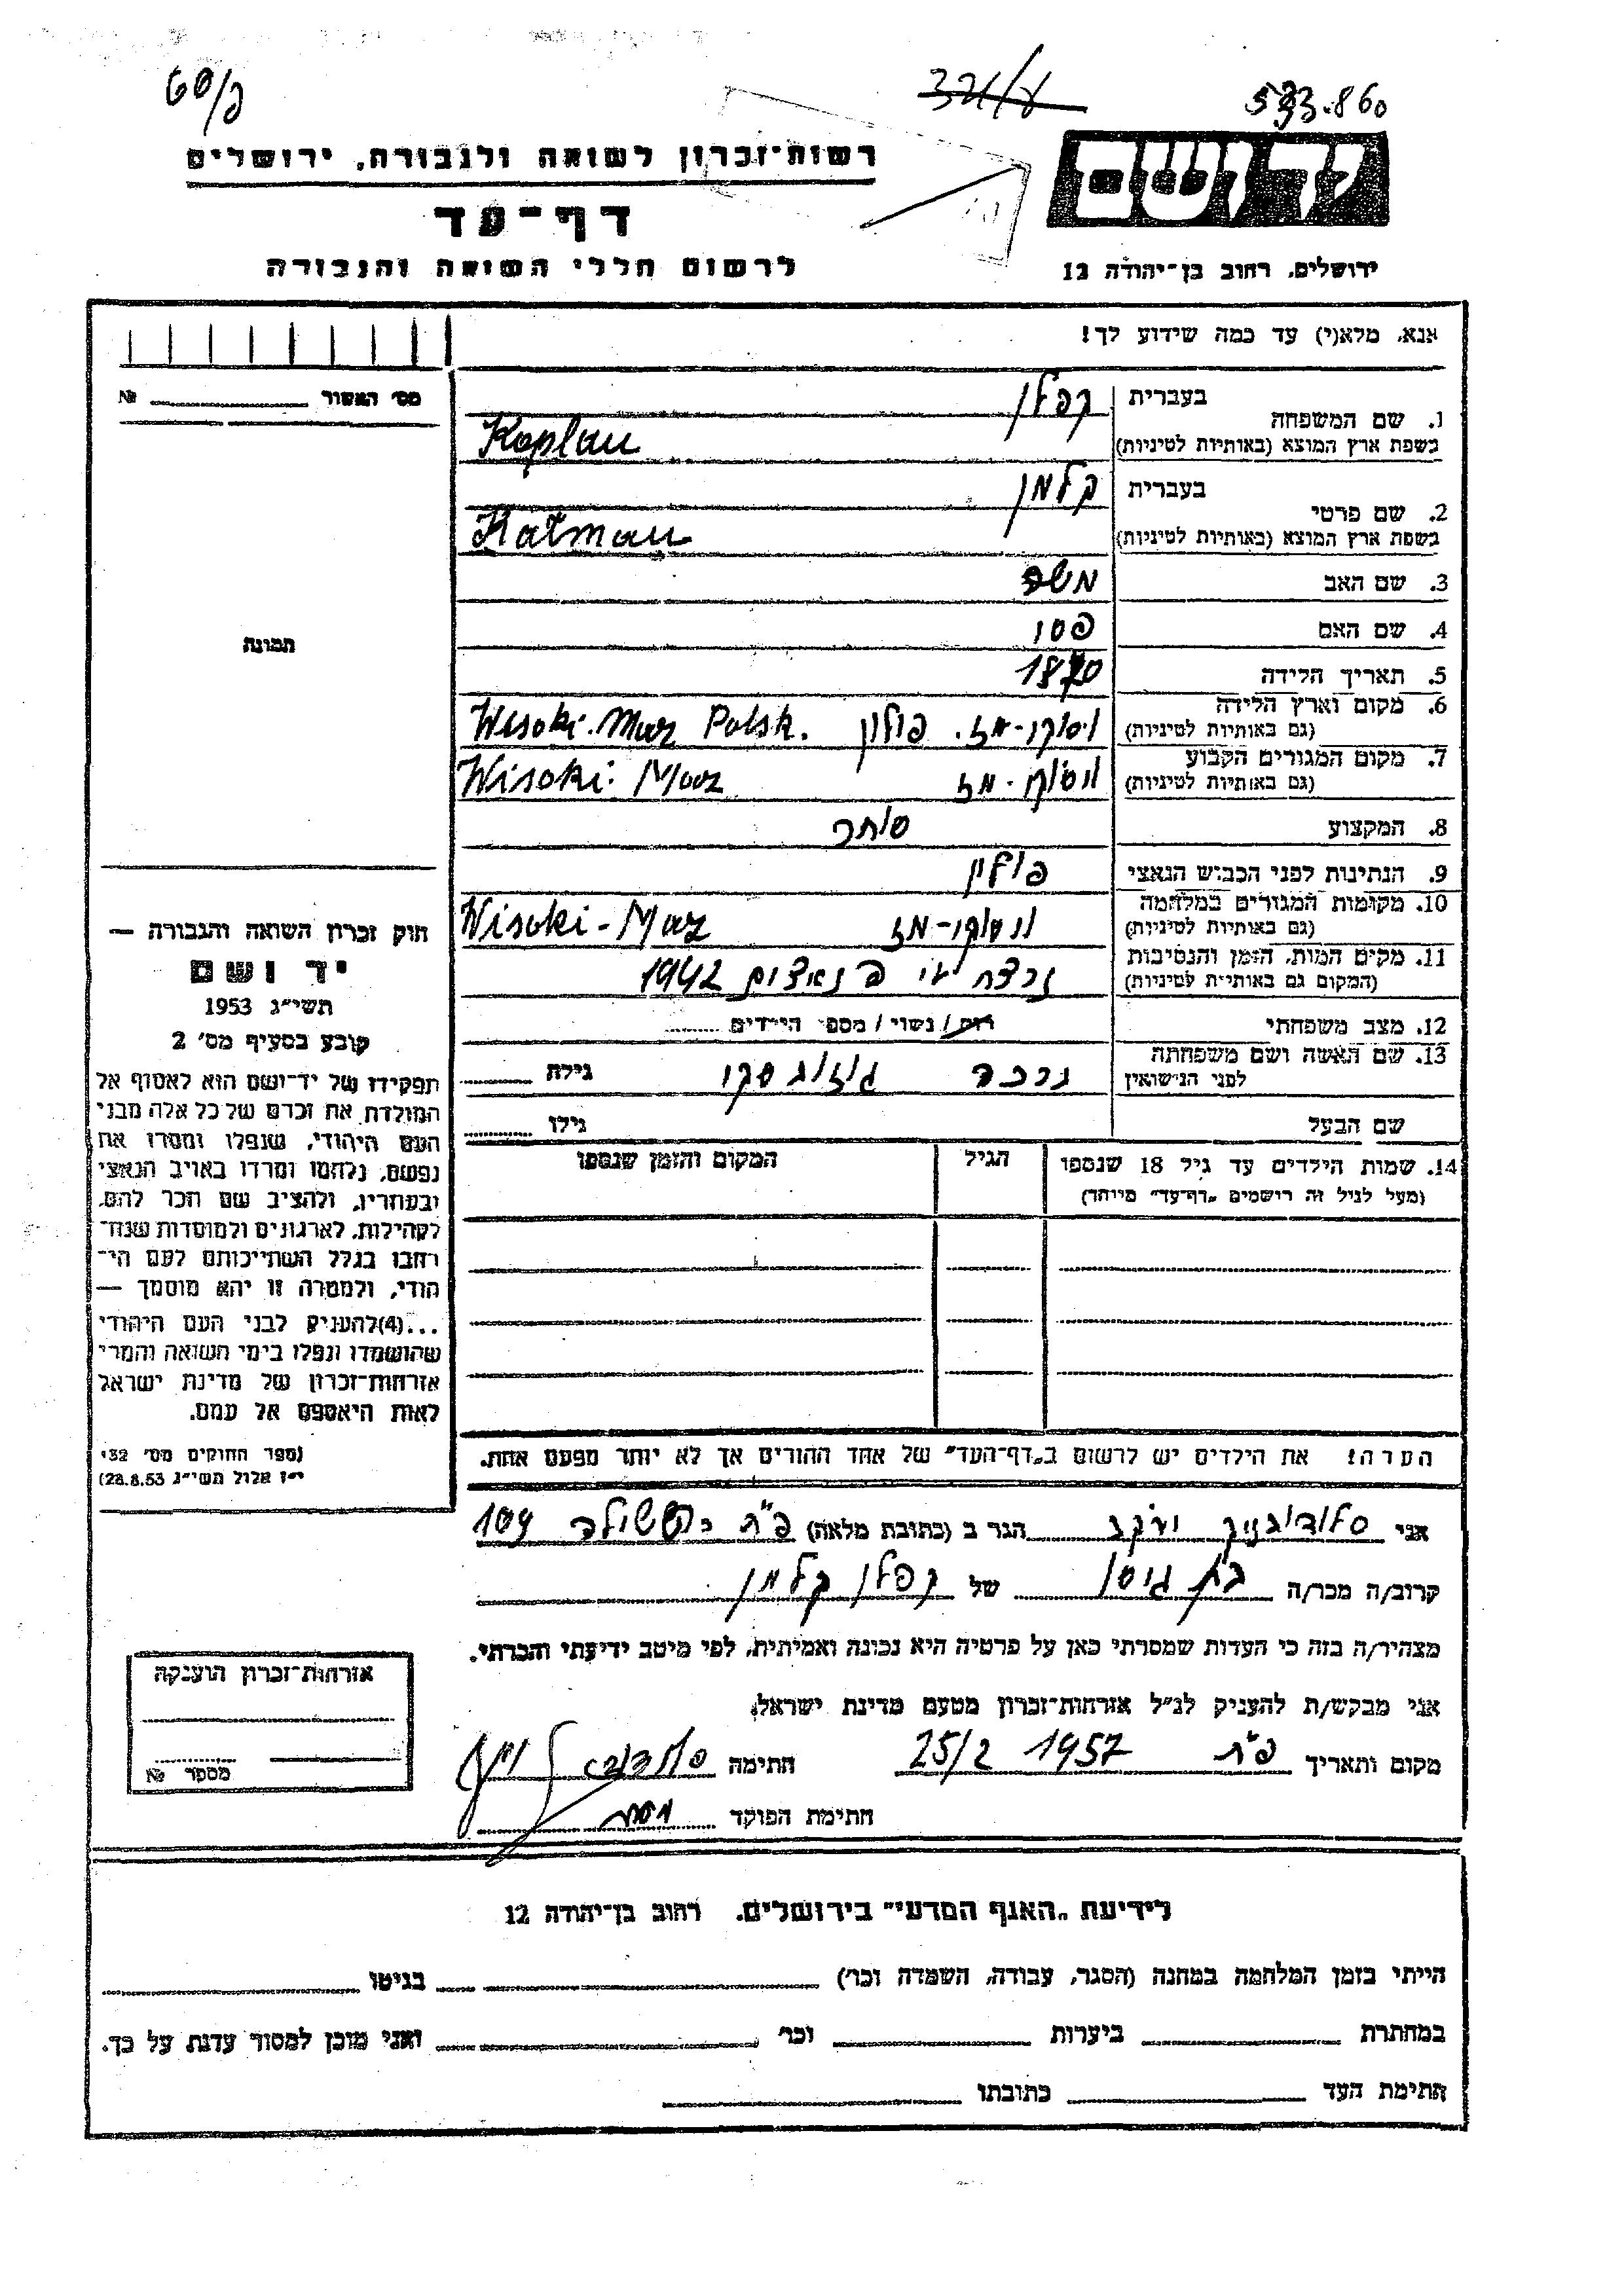 60/ק
321/ץ
533.860
רשות־זכרון לשואה ולגבורה, ירושלים
יד ושם
דף־עד
לרשום חללי השואה והגבורה
ירושלים, רחוב בן־יהודה 12
אנא, מלא(י) עד כמה שידוע לך!
מס׳ האשור № 
1. שם המשפחה בעברית קפלן
בשפת ארץ המוצא (באותיות לטיניות) Kaplan
2. שם פרטי בעברית קלמן
בשפת ארץ המוצא (באותיות לטיניות) Kalman
3. שם האב משה
4. שם האם פסי
תמונה
5. תאריך הלידה 1870
6. מקום וארץ הלידה
(גם באותיות לטיניות) ויסוקי-מז. פולין Wisoki-Maz Polsk.
7. מקום המגורים הקבוע
(גם באותיות לטיניות) ויסוקי-מז Wisoki-Maz
8. המקצוע סוחר
9. הנתינות לפני הכבוש הנאצי פולין
10. מקומות המגורים במלחמה
(גם באותיות לטיניות) ויסוקי-מז Wisoki-Maz
11. מקום המות, הזמן והנסיבות
(המקום גם באותיות לטיניות) נרצח ע״י הנאצים 1942
12. מצב משפחתי רוק / נשוי / מספר הילדים
13. שם האשה ושם משפחתה
לפני הנישואין גילה
שם הבעל גילו
14. שמות הילדים עד גיל 18 שנספו הגיל המקום והזמן שנספו
(מעל לגיל זה רושמים „דף־עד״ מיוחד)
חוק זכרון השואה והגבורה —
יד ושם
תשי״ג 1953
קובע בסעיף מס׳ 2
תפקידו של יד־ושם הוא לאסוף אל
המולדת את זכרם של כל אלה מבני
העם היהודי, שנפלו ומסרו את
נפשם, נלחמו ומרדו באויב הנאצי
ובעוזריו, ולהציב שם וזכר להם,
לקהילות, לארגונים ולמוסדות שנח־
רבו בגלל השתייכותם לעם הי־
הודי, ולמטרה זו יהא מוסמך —
...(4)להעניק לבני העם היהודי
שהושמדו ונפלו בימי השואה והמרי
אזרחות־זכרון של מדינת ישראל
לאות היאספם אל עמם.
(ספר החוקים מס׳ 132
י״ז אלול תשי״ג 28.8.53)
הערה! את הילדים יש לרשום ב„דף־העד״ של אחד ההורים אך לא יותר מפעם אחת.
אני הגר ב (כתובת מלאה) פ״ת 109
קרוב/ה מכר/ה בת גיסן של קפלן קלמן
מצהיר/ה בזה כי העדות שמסרתי כאן על פרטיה היא נכונה ואמיתית, לפי מיטב ידיעתי והכרתי.
אני מבקש/ת להעניק לנ״ל אזרחות־זכרון מטעם מדינת ישראל.
מקום ותאריך פ״ת 25/2 1957 חתימה
חתימת הפוקד
אזרחות־זכרון הוענקה
מספר №
לידיעת „האגף המדעי״ בירושלים. רחוב בן־יהודה 12
הייתי בזמן המלחמה במחנה (הסגר, עבודה, השמדה וכו׳) בגיטו
במחתרת ביערות וכו׳ ואני מוכן למסור עדות על כך.
חתימת העד כתובתו